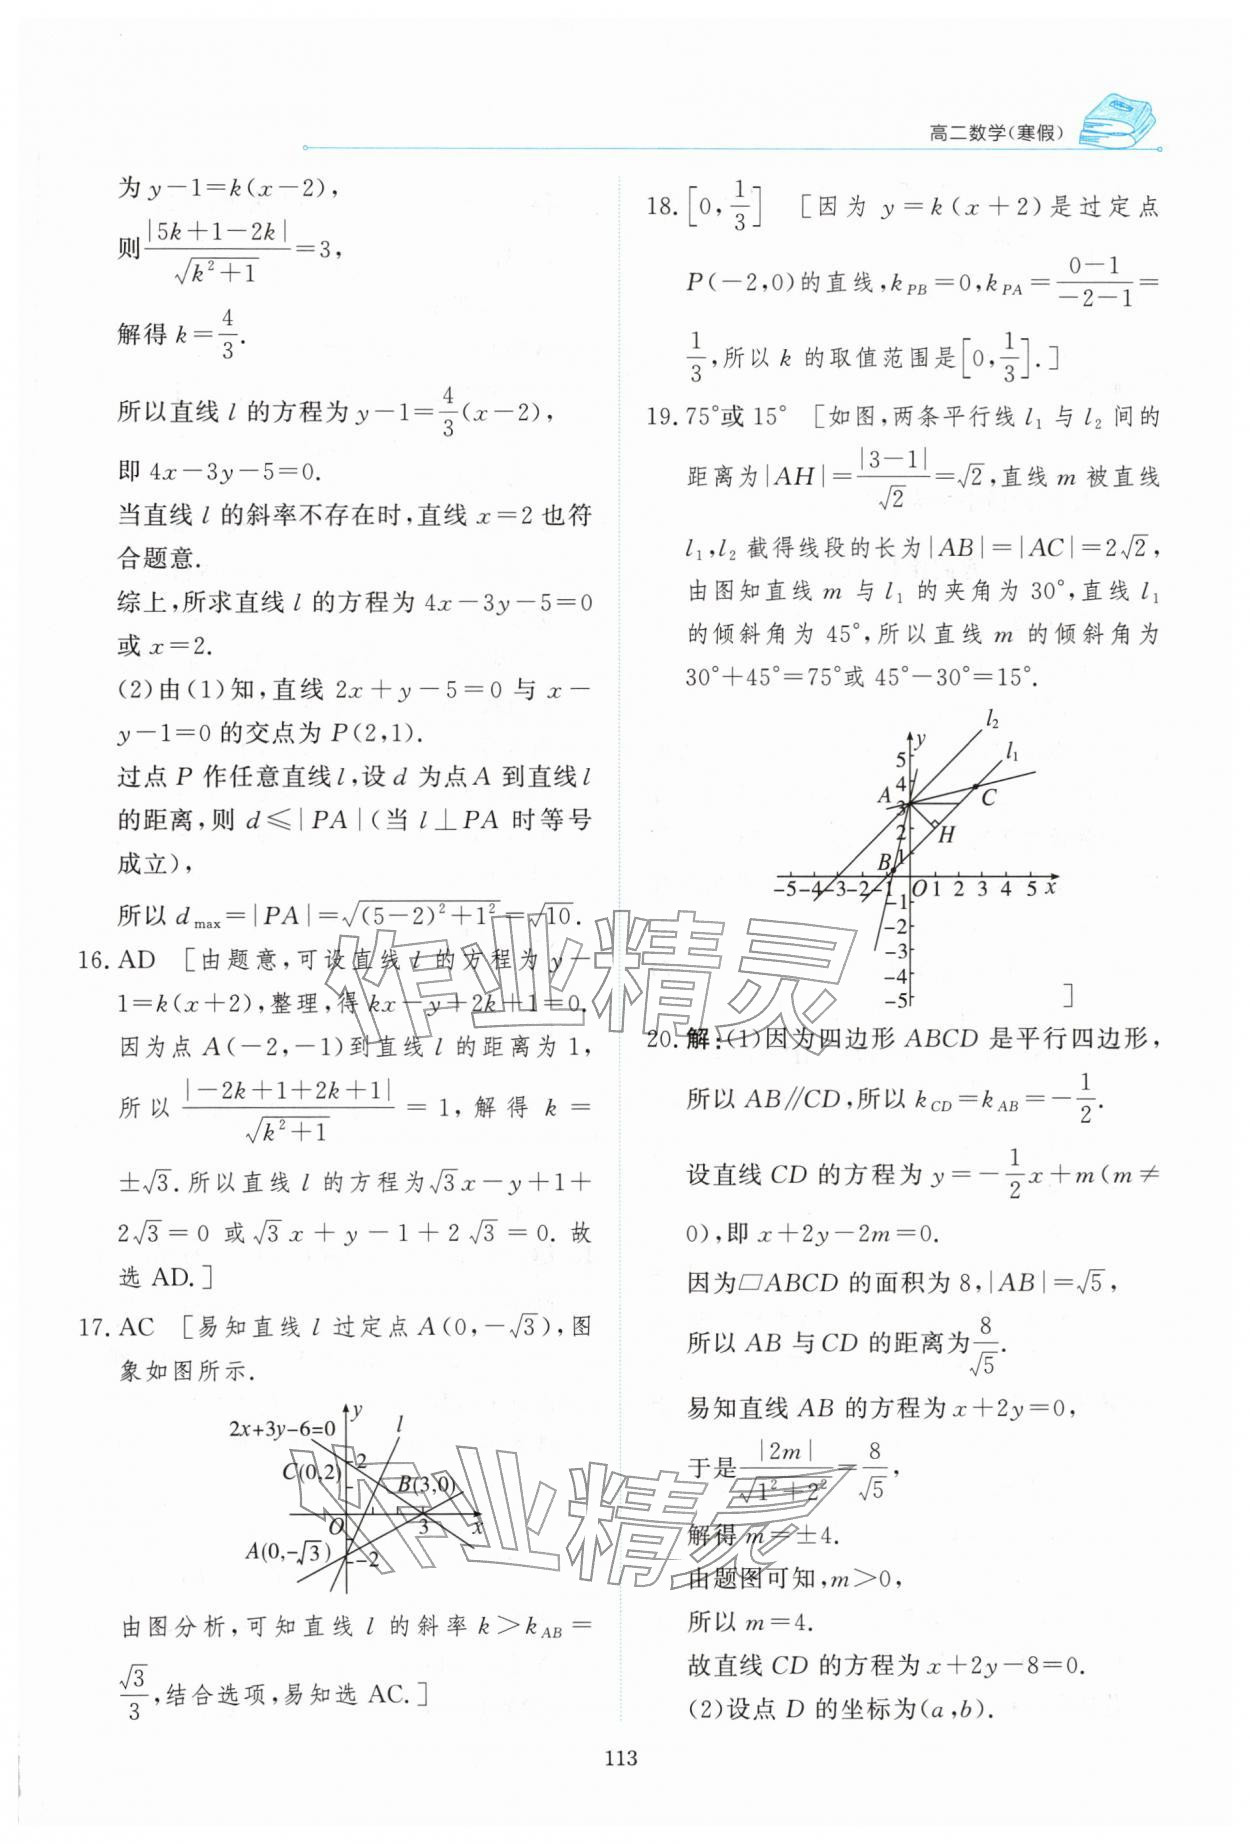 高二数学(寒假)
为 y-1=k(x-2),
则|5k+1-2k|/√(k²+1)=3,
解得 k=4/3.
所以直线 l 的方程为 y-1=4/3(x-2),
即 4x-3y-5=0.
当直线 l 的斜率不存在时,直线 x=2 也符
合题意.
综上,所求直线 l 的方程为 4x-3y-5=0
或 x=2.
(2)由(1)知,直线 2x+y-5=0 与 x-
y-1=0 的交点为 P(2,1).
过点 P 作任意直线 l,设 d 为点 A 到直线 l
的距离,则 d≤|PA|(当 l⊥PA 时等号
成立),
所以 dmax=|PA|=√((5-2)²+1²)=√10.
16. AD [由题意,可设直线 l 的方程为 y-
1=k(x+2),整理,得 kx-y+2k+1=0.
因为点 A(-2,-1)到直线 l 的距离为 1,
所以|-2k+1+2k+1|/√(k²+1)=1,解得 k=
±√3.所以直线 l 的方程为√3x-y+1+
2√3=0 或√3x+y-1+2√3=0.故
选 AD.]
17. AC [易知直线 l 过定点 A(0,-√3),图
象如图所示.
y
l
2x+3y-6=0
2
C(0,2)
B(3,0)
O
3
x
A(0,-√3)
-2
由图分析,可知直线 l 的斜率 k>kAB=
√3/3,结合选项,易知选 AC.]
18. [0,1/3] [因为 y=k(x+2)是过定点
P(-2,0)的直线,kPB=0,kPA=(0-1)/(-2-1)=
1/3,所以 k 的取值范围是[0,1/3].]
19. 75°或 15° [如图,两条平行线 l₁ 与 l₂ 间的
距离为|AH|=|3-1|/√2=√2,直线 m 被直线
l₁,l₂ 截得线段的长为|AB|=|AC|=2√2,
由图知直线 m 与 l₁ 的夹角为 30°,直线 l₁
的倾斜角为 45°,所以直线 m 的倾斜角为
30°+45°=75°或 45°-30°=15°.
l₂
y
l₁
5
4
A
C
3
2
H
1
B
-5 -4 -3 -2 -1 O 1 2 3 4 5 x
-1
-2
-3
-4
-5
]
20. 解:(1)因为四边形 ABCD 是平行四边形,
所以 AB∥CD,所以 kCD=kAB=-1/2.
设直线 CD 的方程为 y=-1/2x+m(m≠
0),即 x+2y-2m=0.
因为▱ABCD 的面积为 8,|AB|=√5,
所以 AB 与 CD 的距离为8/√5.
易知直线 AB 的方程为 x+2y=0,
于是|2m|/√(1²+2²)=8/√5,
解得 m=±4.
由题图可知,m>0,
所以 m=4.
故直线 CD 的方程为 x+2y-8=0.
(2)设点 D 的坐标为(a,b).
113
作业精灵
作业精灵